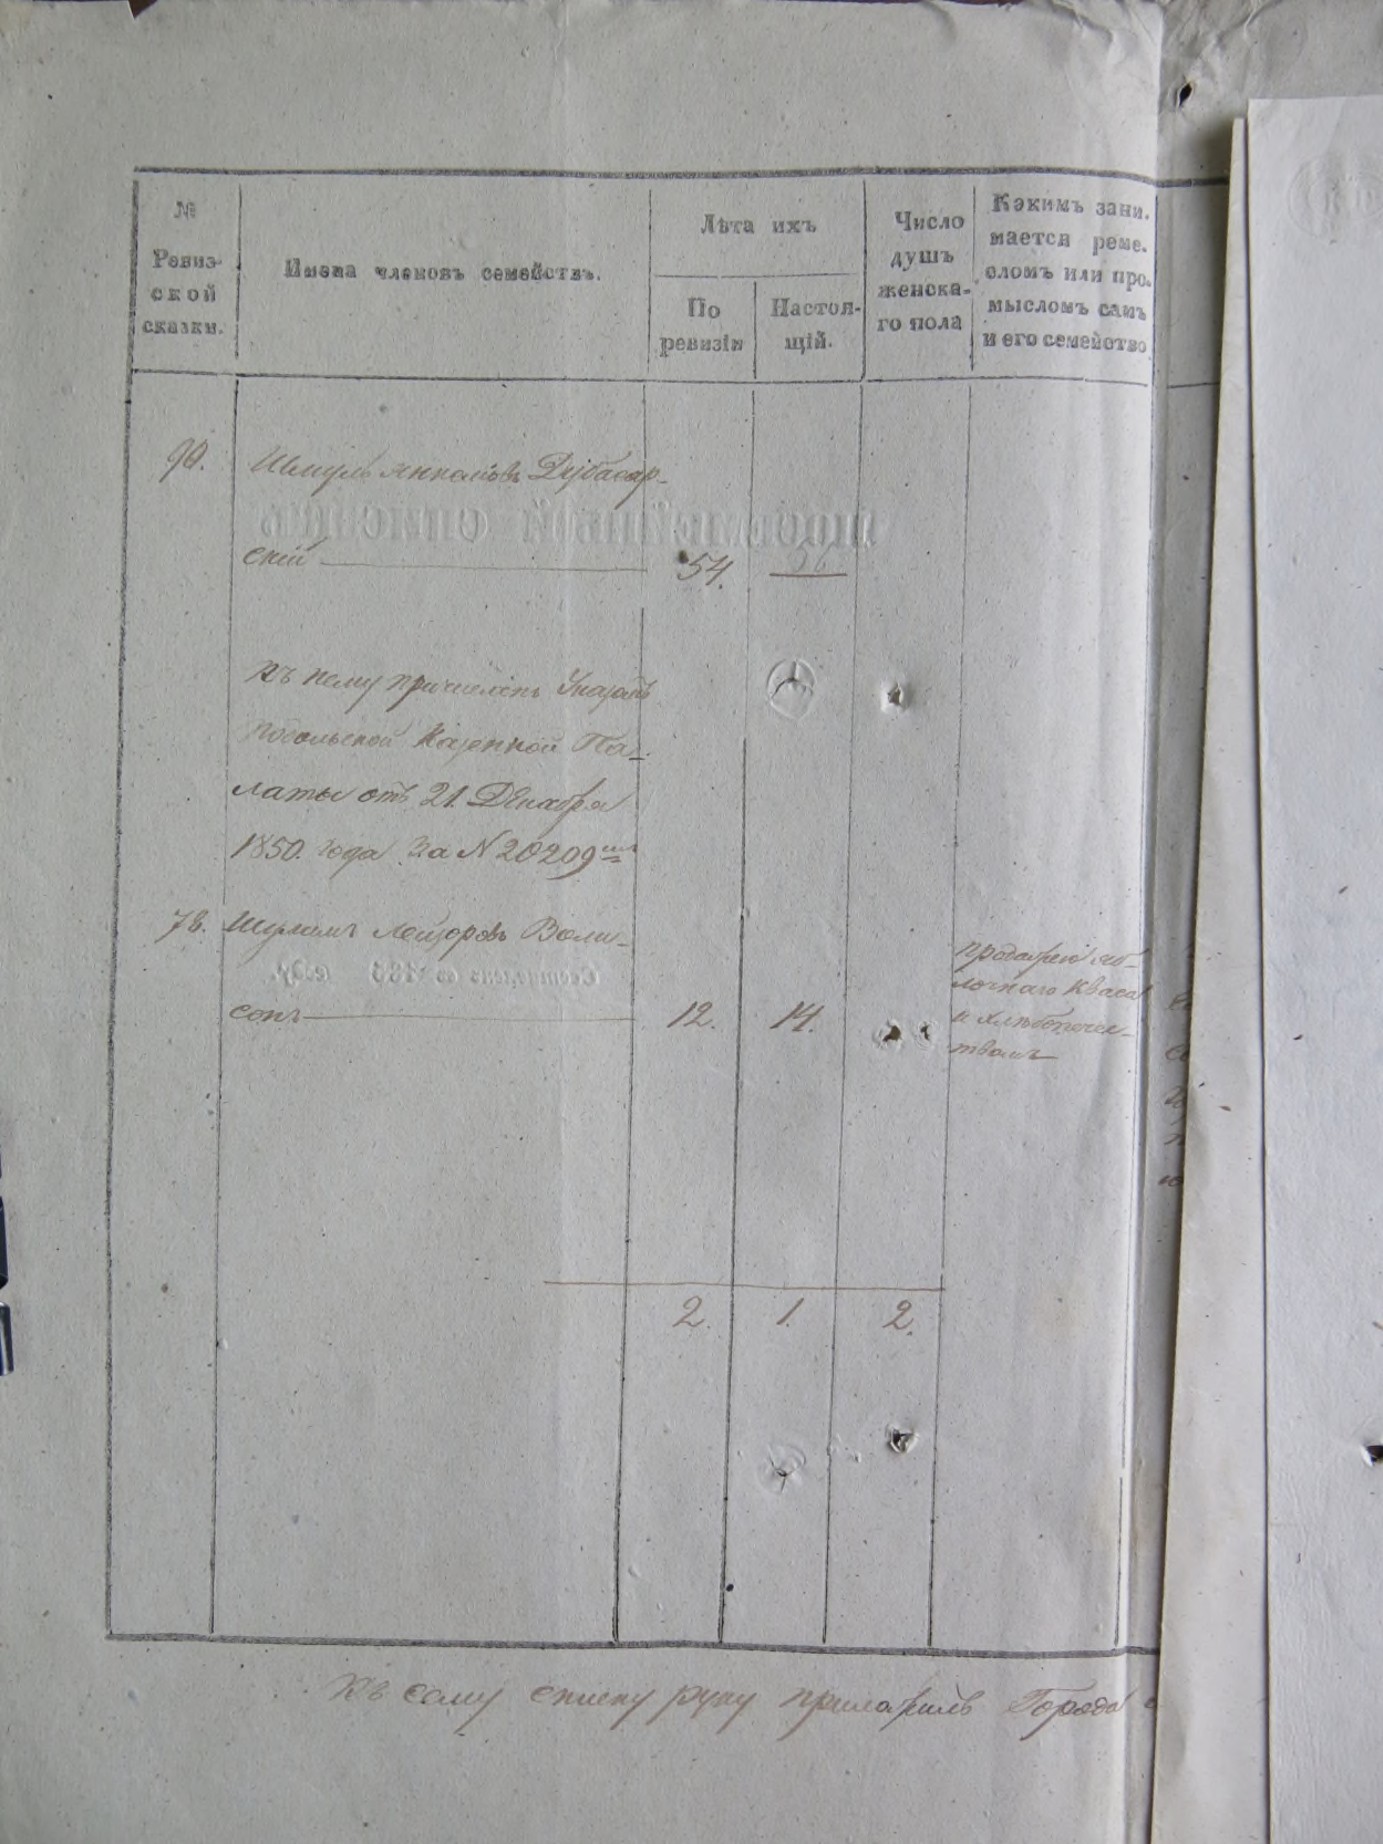 №
Ревиз-
ской
сказки.
Имена членовъ семействъ.
Лѣта ихъ
По
ревизіи
Настоя-
щій.
Число
душъ
женска-
го пола
Какимъ зани-
мается реме-
сломъ или про-
мысломъ самъ
и его семейство
90.
Шмуль Янкелiовъ Дубасар-
скій
54. 56
къ нему причисленъ Указомъ
Подольской Казенной Па-
латы отъ 21. Декабря
1850. года за N 20209
78. Лейзоровъ Воли-
сонъ
12. 14.
продажею яб-
лочнаго Кваса
и хлѣбопечес-
твомъ
2. 1. 2.
Къ сему списку руку приложилъ Города